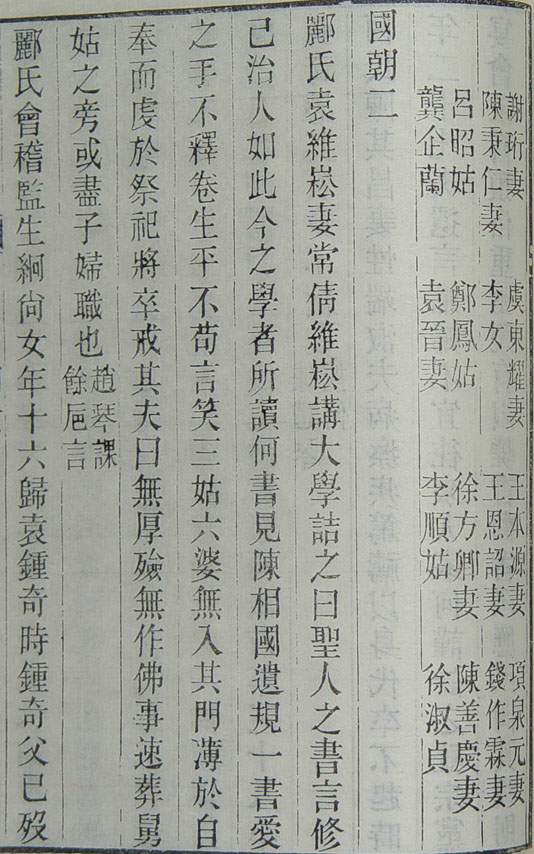 謝珩妻　虞東耀妻　王本源妻　項泉元妻
陳秉仁妻　李女　王恩詔妻　錢作霖妻
呂昭姑　鄭鳳姑　徐方卿妻　陳善慶妻
龔企蘭　袁晉妻　李順姑　徐淑貞
國朝二
酈氏袁維崧妻常倩維崧講大學詰之曰聖人之書言修
己治人如此今之學者所讀何書見陳相國遺規一書愛
之手不釋卷生平不苟言笑三姑六婆無入其門溥於自
奉而虔於祭祀將卒戒其夫曰無厚殮無作佛事速葬舅
姑之旁或盡子婦職也趙琴課餘巵言
酈氏會稽監生絅尙女年十六歸袁鍾奇時鍾奇父已歿